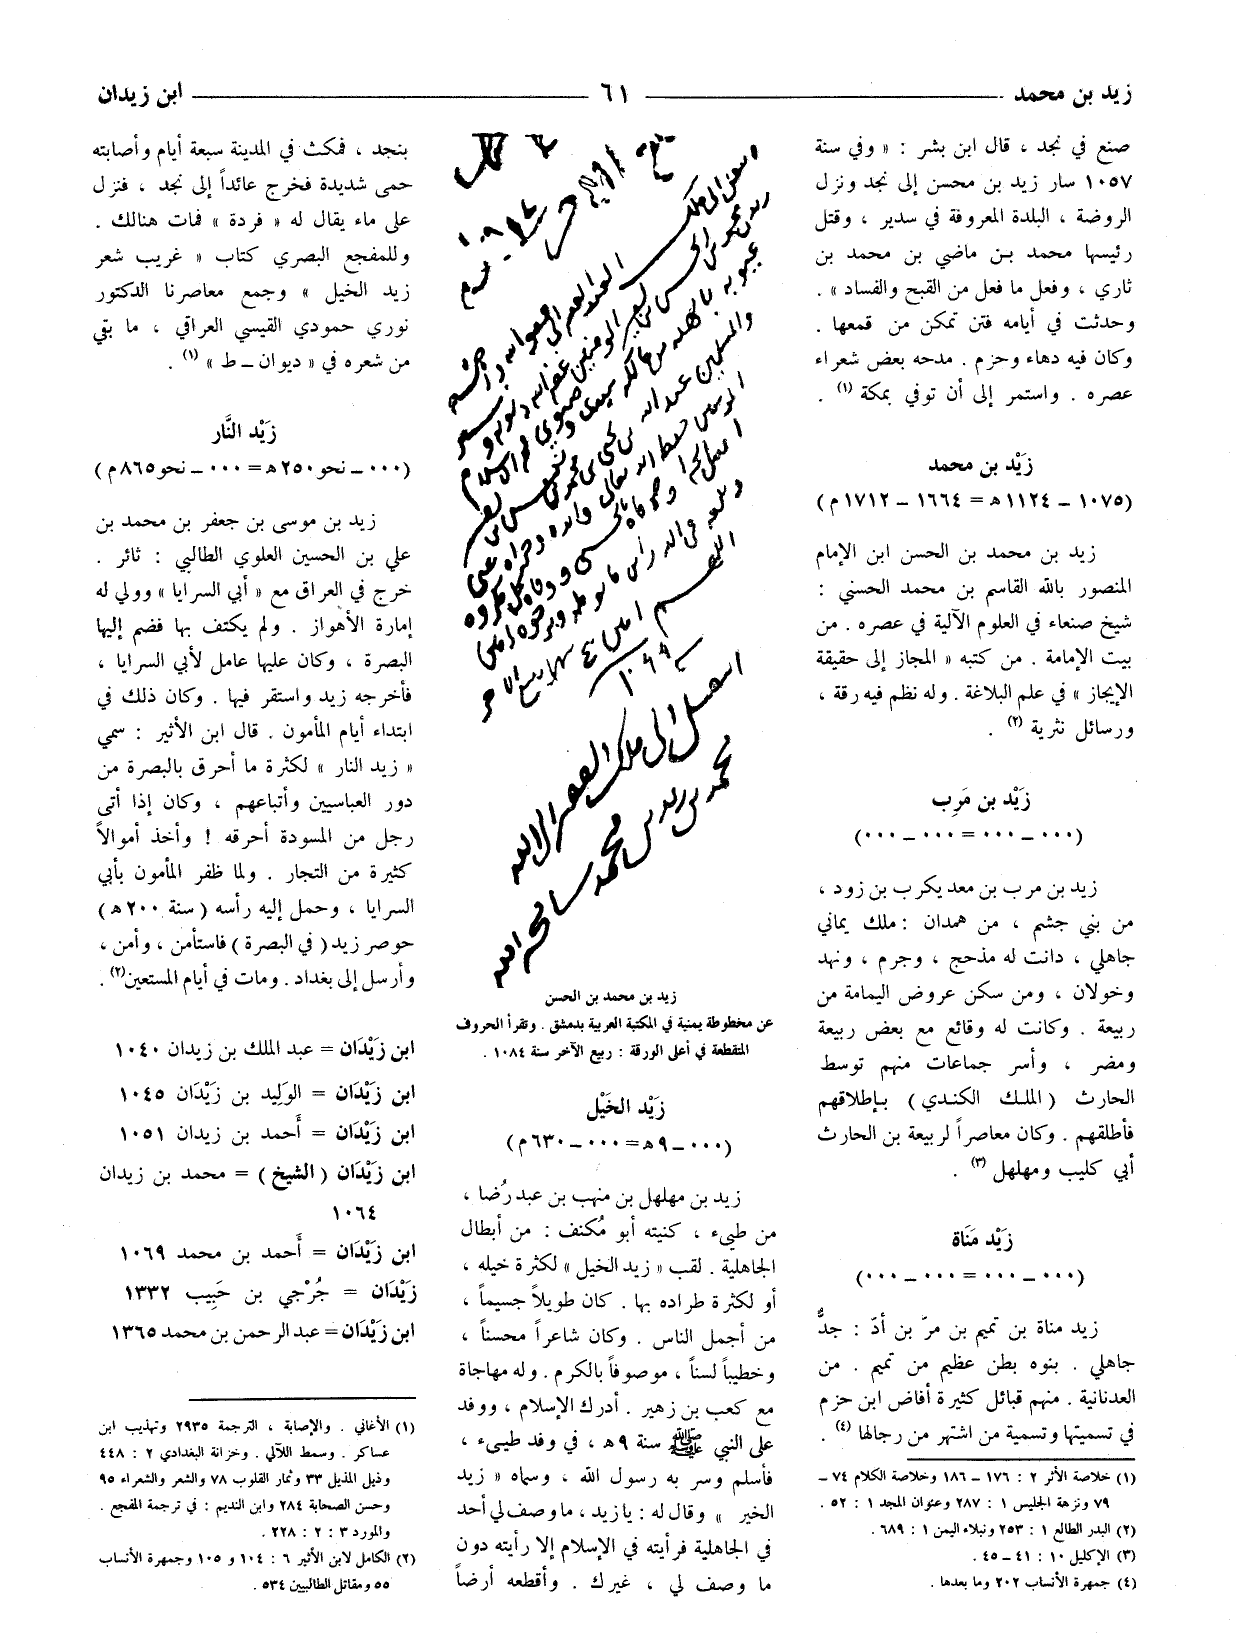 زيد بن محمد ٦١ ابن زيدان
صنع في نجد ، قال ابن بشر : « وفي سنة
١٠٥٧ سار زيد بن محسن إلى نجد ونزل
الروضة ، البلدة المعروفة في سدير ، وقتل
رئيسها محمد بن ماضي بن محمد بن
ثاري ، وفعل ما فعل من القبح والفساد » .
وحدثت في أيامه فتن تمكن من قمعها .
وكان فيه دهاء وحزم . مدحه بعض شعراء
عصره . واستمر إلى أن توفي بمكة (١) .
زَيْد بن محمد
(١٠٧٥ ــ ١١٢٤ هـ = ١٦٦٤ ــ ١٧١٢ م)
زيد بن محمد بن الحسن ابن الإمام
المنصور بالله القاسم بن محمد الحسني :
شيخ صنعاء في العلوم الآلية في عصره . من
بيت الإمامة . من كتبه « المجاز إلى حقيقة
الإيجاز » في علم البلاغة . وله نظم فيه رقة ،
ورسائل نثرية (٢) .
زَيْد بن مَرِب
(٠٠٠ ــ ٠٠٠ = ٠٠٠ ــ ٠٠٠)
زيد بن مرب بن معد يكرب بن زود ،
من بني جشم ، من همدان : ملك يماني
جاهلي ، دانت له مذحج ، وجرم ، ونهد
وخولان ، ومن سكن عروض اليمامة من
ربيعة . وكانت له وقائع مع بعض ربيعة
ومضر ، وأسر جماعات منهم توسط
الحارث (الملك الكندي) بإطلاقهم
فأطلقهم . وكان معاصراً لربيعة بن الحارث
أبي كليب ومهلهل (٣) .
زَيْد مَنَاة
(٠٠٠ ــ ٠٠٠ = ٠٠٠ ــ ٠٠٠)
زيد مناة بن تميم بن مرّ بن أدّ : جدٌّ
جاهلي . بنوه بطن عظيم من تميم . من
العدنانية . منهم قبائل كثيرة أفاض ابن حزم
في تسميتها وتسمية من اشتهر من رجالها (٤) .
(١) خلاصة الأثر ٢ : ١٧٦ ــ ١٨٦ وخلاصة الكلام ٧٤ ــ
٧٩ ونزهة الجليس ١ : ٢٨٧ وعنوان المجد ١ : ٥٢ .
(٢) البدر الطالع ١ : ٢٥٣ ونبلاء اليمن ١ : ٦٨٩ .
(٣) الإكليل ١٠ : ٤١ ــ ٤٥ .
(٤) جمهرة الأنساب ٢٠٢ وما بعدها .
زيد بن محمد بن الحسن
عن مخطوطة يمنية في المكتبة العربية بدمشق . وتقرأ الحروف
المتقطعة في أعلى الورقة : ربيع الآخر سنة ١٠٨٤ .
زَيْد الخَيْل
(٠٠٠ ــ ٩ هـ = ٠٠٠ ــ ٦٣٠ م)
زيد بن مهلهل بن منهب بن عبد رُضا ،
من طيىء ، كنيته أبو مُكنف : من أبطال
الجاهلية . لقب « زيد الخيل » لكثرة خيله ،
أو لكثرة طراده بها . كان طويلاً جسيماً ،
من أجمل الناس . وكان شاعراً محسناً ،
وخطيباً لسناً ، موصوفاً بالكرم . وله مهاجاة
مع كعب بن زهير . أدرك الإسلام ، ووفد
على النبي ﷺ سنة ٩ هـ ، في وفد طيىء ،
فأسلم وسر به رسول الله ، وسماه « زيد
الخير » وقال له : يا زيد ، ما وصف لي أحد
في الجاهلية فرأيته في الإسلام إلا رأيته دون
ما وصف لي ، غيرك . وأقطعه أرضاً
بنجد ، فمكث في المدينة سبعة أيام وأصابته
حمى شديدة فخرج عائداً إلى نجد ، فنزل
على ماء يقال له « فردة » فمات هنالك .
وللمفجع البصري كتاب « غريب شعر
زيد الخيل » وجمع معاصرنا الدكتور
نوري حمودي القيسي العراقي ، ما بقي
من شعره في « ديوان ــ ط » (١) .
زَيْد النَّار
(٠٠٠ ــ نحو ٢٥٠ هـ = ٠٠٠ ــ نحو ٨٦٥ م)
زيد بن موسى بن جعفر بن محمد بن
علي بن الحسين العلوي الطالبي : ثائر .
خرج في العراق مع « أبي السرايا » وولي له
إمارة الأهواز . ولم يكتف بها فضم إليها
البصرة ، وكان عليها عامل لأبي السرايا ،
فأخرجه زيد واستقر فيها . وكان ذلك في
ابتداء أيام المأمون . قال ابن الأثير : سمي
« زيد النار » لكثرة ما أحرق بالبصرة من
دور العباسيين وأتباعهم ، وكان إذا أتى
رجل من المسودة أحرقه ! وأخذ أموالاً
كثيرة من التجار . ولما ظفر المأمون بأبي
السرايا ، وحمل إليه رأسه (سنة ٢٠٠ هـ)
حوصر زيد (في البصرة) فاستأمن ، وأمن ،
وأرسل إلى بغداد . ومات في أيام المستعين(٢) .
ابن زَيْدَان = عبد الملك بن زيدان ١٠٤٠
ابن زَيْدَان = الوَلِيد بن زَيْدَان ١٠٤٥
ابن زَيْدَان = أَحمد بن زيدان ١٠٥١
ابن زَيْدَان (الشيخ) = محمد بن زيدان
١٠٦٤
ابن زَيْدَان = أَحمد بن محمد ١٠٦٩
زَيْدَان = جُرْجي بن حَبِيب ١٣٣٢
ابن زَيْدَان = عبد الرحمن بن محمد ١٣٦٥
(١) الأغاني . والإصابة ، الترجمة ٢٩٣٥ وتهذيب ابن
عساكر . وسمط اللآلي . وخزانة البغدادي ٢ : ٤٤٨
وذيل المذيل ٣٣ وثمار القلوب ٧٨ والشعر والشعراء ٩٥
وحسن الصحابة ٢٨٤ وابن النديم : في ترجمة المفجع .
والمورد ٣ : ٢ : ٢٢٨ .
(٢) الكامل لابن الأثير ٦ : ١٠٤ و ١٠٥ وجمهرة الأنساب
٥٥ ومقاتل الطالبيين ٥٣٤ .